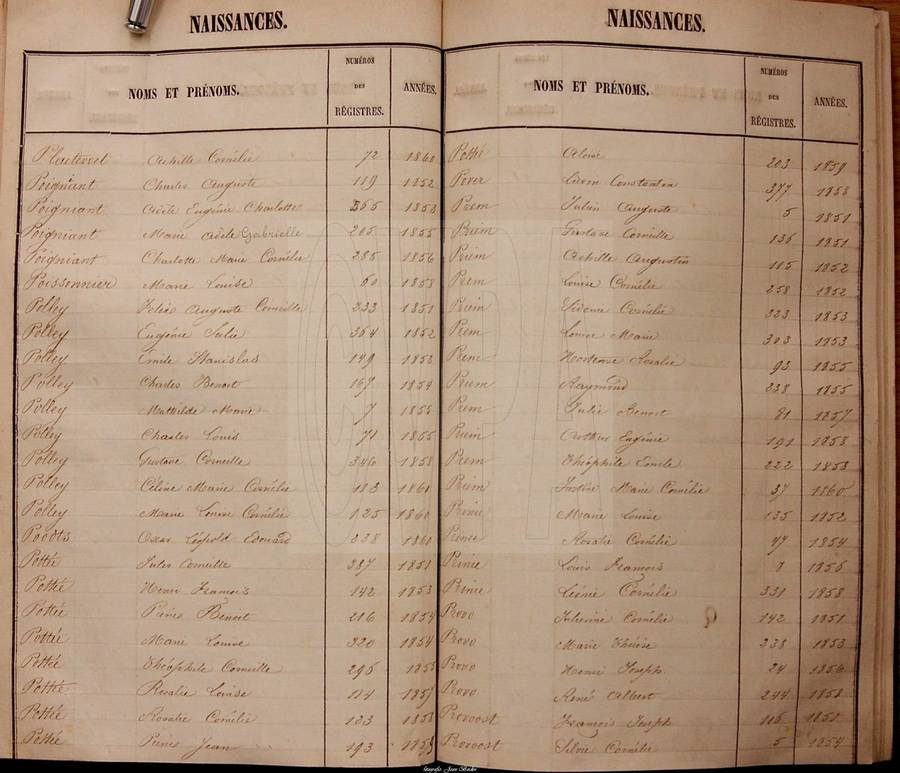 NAISSANCES.
NOMS ET PRÉNOMS. NUMÉROS DES RÉGISTRES. ANNÉES.
Achille Cornélie 72 1860
Poigniant Charles Auguste 119 1852
Poigniant Adèle Eugénie Charlotte 365 1853
Poigniant Marie Adèle Gabrielle 205 1855
Poigniant Charlotte Marie Cornélie 285 1856
Poissonnier Marie Louise 60 1858
Polley Félix Auguste Corneille 233 1851
Polley Eugénie Julie 364 1852
Polley Emile Stanislas 149 1853
Polley Charles Benoit 167 1854
Polley Mathilde Marie 7 1855
Polley Charles Louis 71 1855
Polley Gustave Corneille 346 1858
Polley Céline Marie Cornélie 1860
Polley Marie Louise Cornélie 125 1860
Oscar Léopold Edouard 238 1860
Pottié Jules Corneille 387 1851
Pottié Henri François 142 1853
Pottié Benoit 216 1854
Pottié Marie Louise 320 1854
Pottié Théophile Corneille 295 1855
Pottié Rosalie Louise 1857
Pottié Rosalie Cornélie 123 1858
Pottié Jean 193 1859
NAISSANCES.
NOMS ET PRÉNOMS. NUMÉROS DES RÉGISTRES. ANNÉES.
Pottié Aloïse 203 1859
Constantin 377 1858
Prem Auguste 5 1851
Gustave Corneille 136 1851
Achille Augustin 115 1852
Louise Cornélie 258 1852
Sidonie Cornélie 323 1853
Louise Marie 303 1853
Hortense Rosalie 93 1855
Raymond 238 1855
Julie Benoit 81 1857
Arthur Eugénie 191 1858
Théophile Emile 222 1853
Justine Marie Cornélie 37 1860
Marie Louise 135 1852
Rosalie Cornélie 47 1854
Louis François 1856
Léonie Cornélie 331 1858
Provo Cornélie 142 1851
Provo Marie Thérèse 238 1853
Provo Henri Joseph 24 1856
Provo René Albert 244 1858
Provoost François Joseph 116 1851
Provoost Silvie Cornélie 5 1854